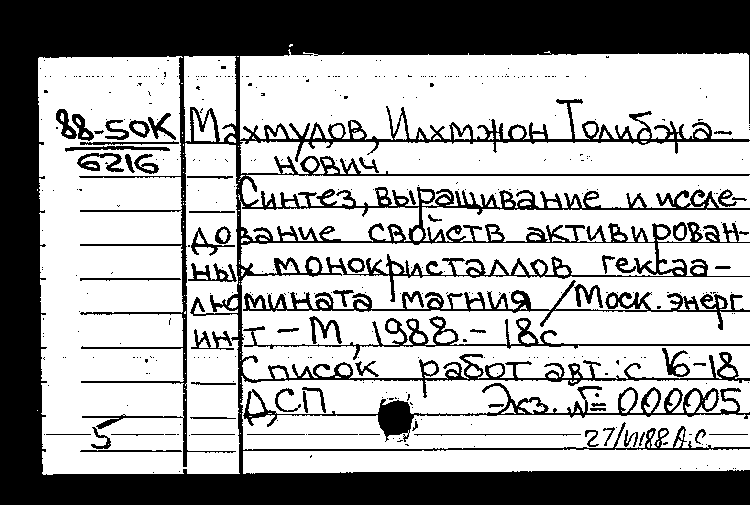 88-50К Махмудов, Илхмжон Толибжа-
6216 нович.
Синтез, выращивание и иссле-
дование свойств активирован-
ных монокристаллов гексаа-
люмината магния / Моск. энерг.
ин-т. - М., 1988. - 18с.
Список работ авт.: с 16-18.
ДСП. Экз. № 000005.
5 27/VII88. А.С.